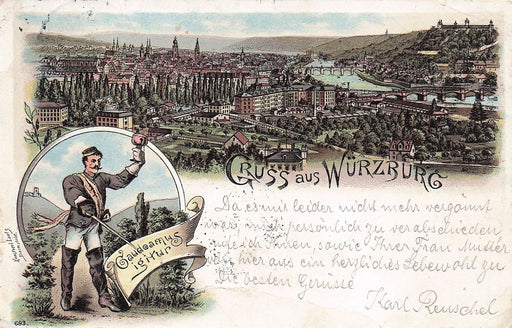 GRUSS aus WÜRZBURG
Gaudeamus
igitur
Da es mir leider nicht mehr vergönnt
war, mich persönlich zu verabschieden
rufe ich Ihnen, sowie Ihrer Frau Mutter
von hier aus ein herzliches Lebewohl zu
Die besten Grüsse
Karl Reuschel
693.